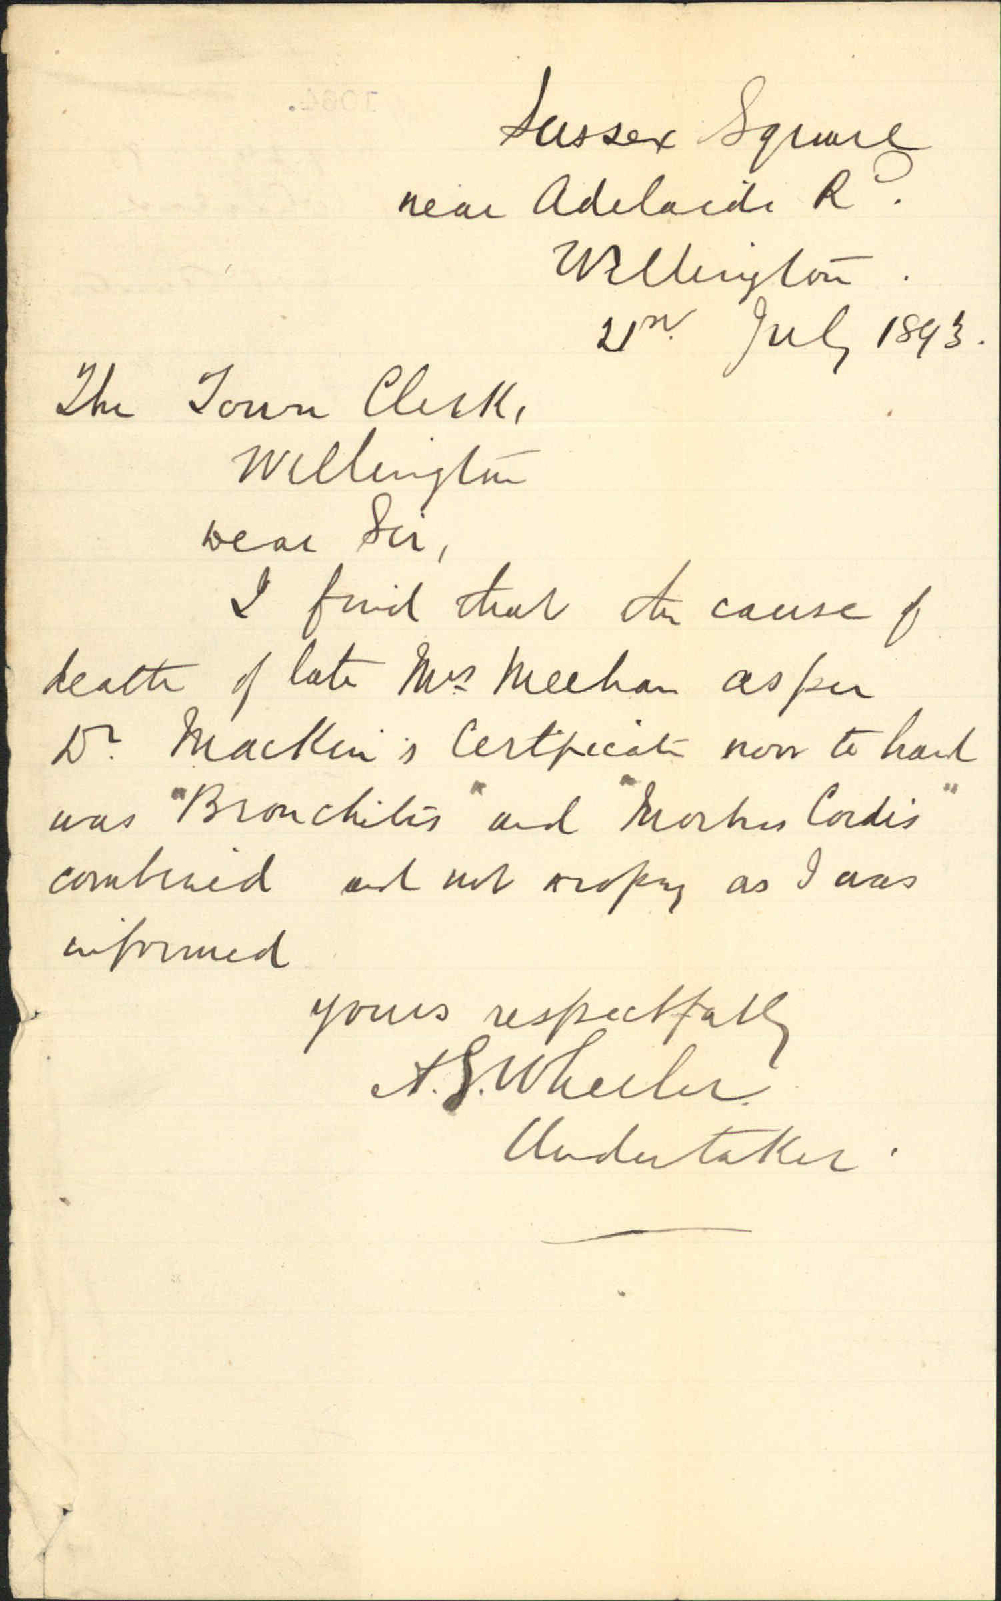 Sussex Square
near Adelaide Rd.
Wellington.
July 1893.
The Town Clerk,
Wellington
Dear Sir,
I find that the cause of
death of late Mrs Meehan as per
Dr. Mackin's Certificate now to hand
was "Bronchitis" and "Morbus Cordis"
combined and not dropsy as I was
informed
yours respectfully
A. G. Wheeler.
Undertaker.